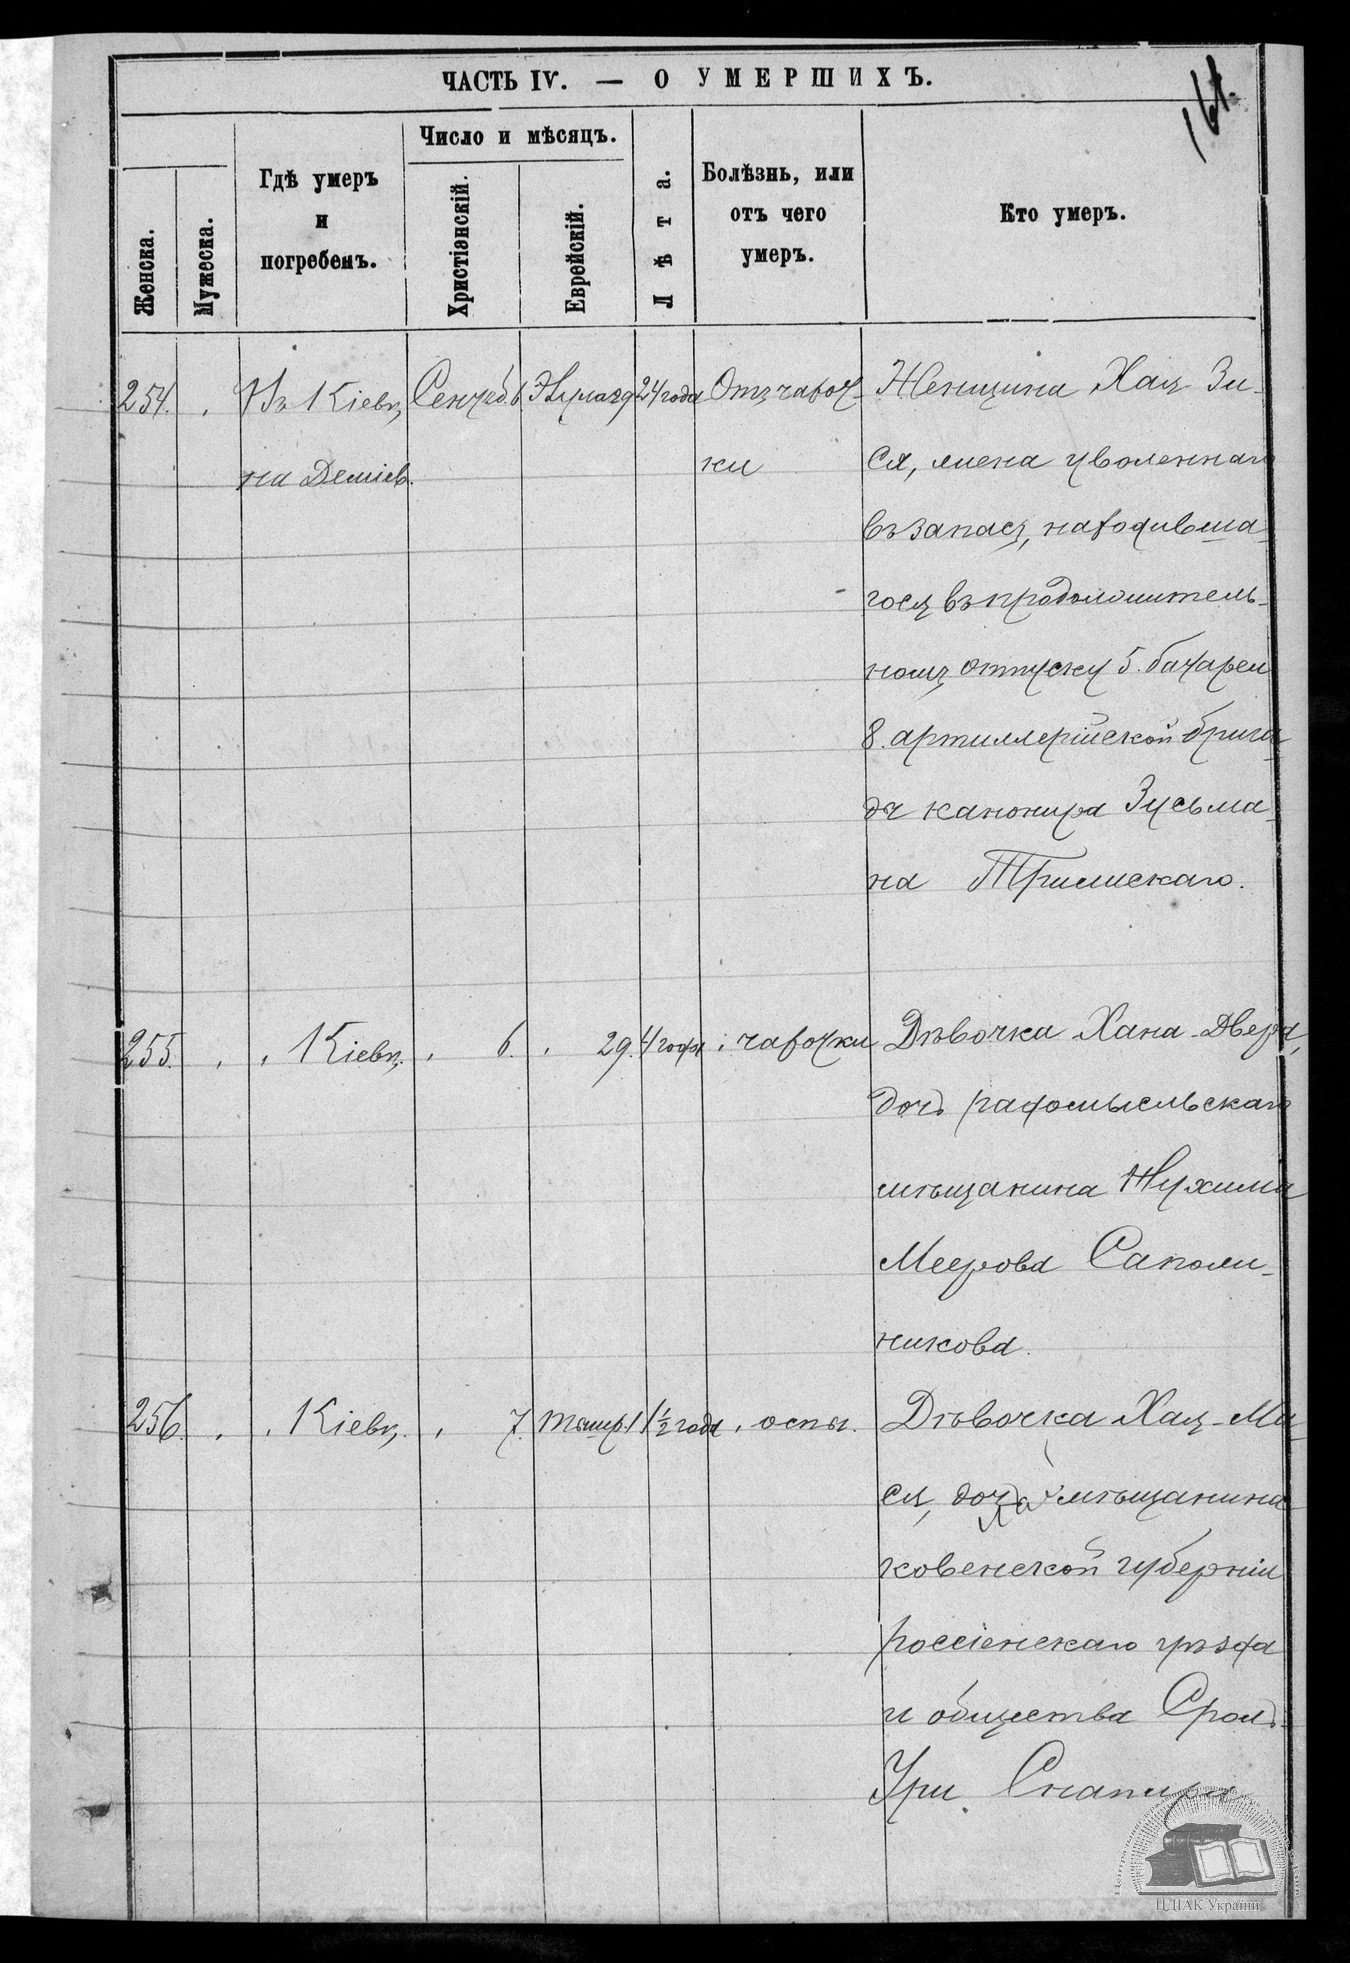 161.
ЧАСТЬ IV. — О УМЕРШИХЪ.
Женска.
Мужеска.
Гдѣ умеръ
и
погребенъ.
Число и мѣсяцъ.
Христіанскій.
Еврейскій.
Лѣта.
Болѣзнь, или
отъ чего
умеръ.
Кто умеръ.
254. Въ Кіевѣ, Сентяб. 6 Элула 29 24 года Отъ чахот- Женщина Хая Зи-
на Деміев. ки ся, жена уволеннаго
въ запасъ, находивша-
гося въ продолжитель-
номъ отпуску 5. батареи
8. артиллерійской брига-
дѣ канонира Зусьма-
на Тримскаго.
255. " " Кіевѣ, " 6. " 29. 4 года " чахотки Дѣвочка Хана-Двера,
дочь радомысльскаго
мѣщанина Нухима
Меерова Саполи-
никова.
256. " " Кіевѣ, " 7. Тишр. 1 1 1/2 года " оспы. Дѣвочка Хая-Ма-
ся, дочь мѣщанина
ковенской губерніи
россіенскаго уѣзда
и общества Сроль
Ури Снапири
ЦДІАК України